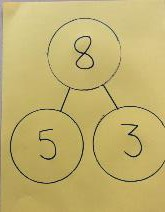 8
5 3